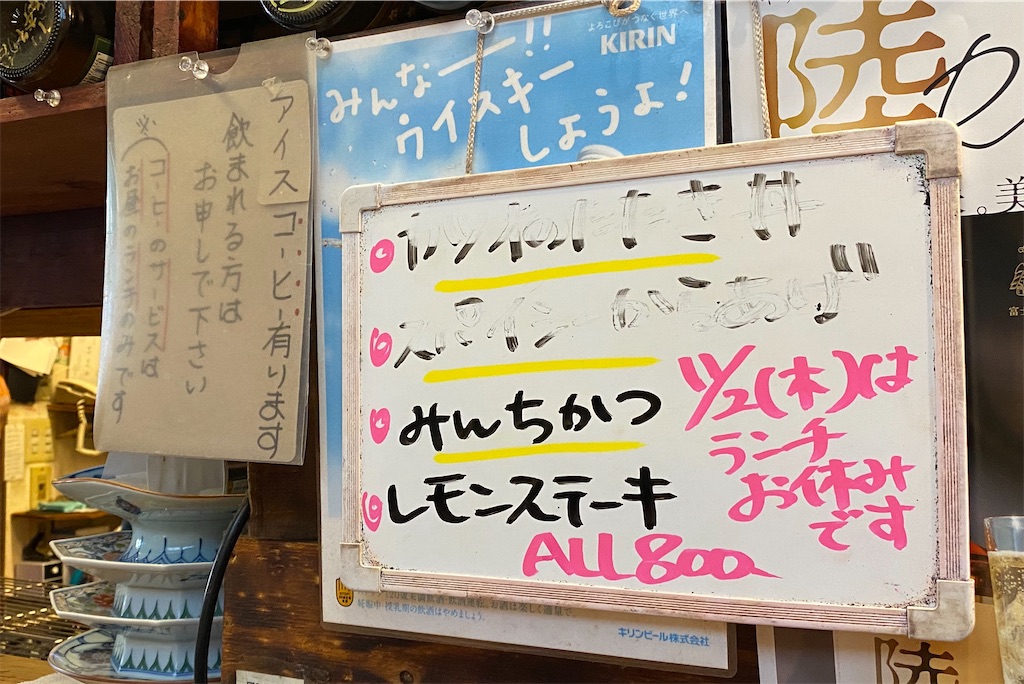 アイスコーヒー有ります
飲まれる方は
お申しで下さい
※
コーヒーのサービスは
お昼のランチのみです
よろこびがつなぐ世界へ
KIRIN
みんなー!!
ウイスキー
しようよ!
陸
カツ
スパイシーからあげ
みんちかつ
レモンステーキ
ALL 800
11/2(木)は
ランチ
お休み
です
妊娠中・授乳期の飲酒はやめましょう。
キリンビール株式会社
美
富士
陸